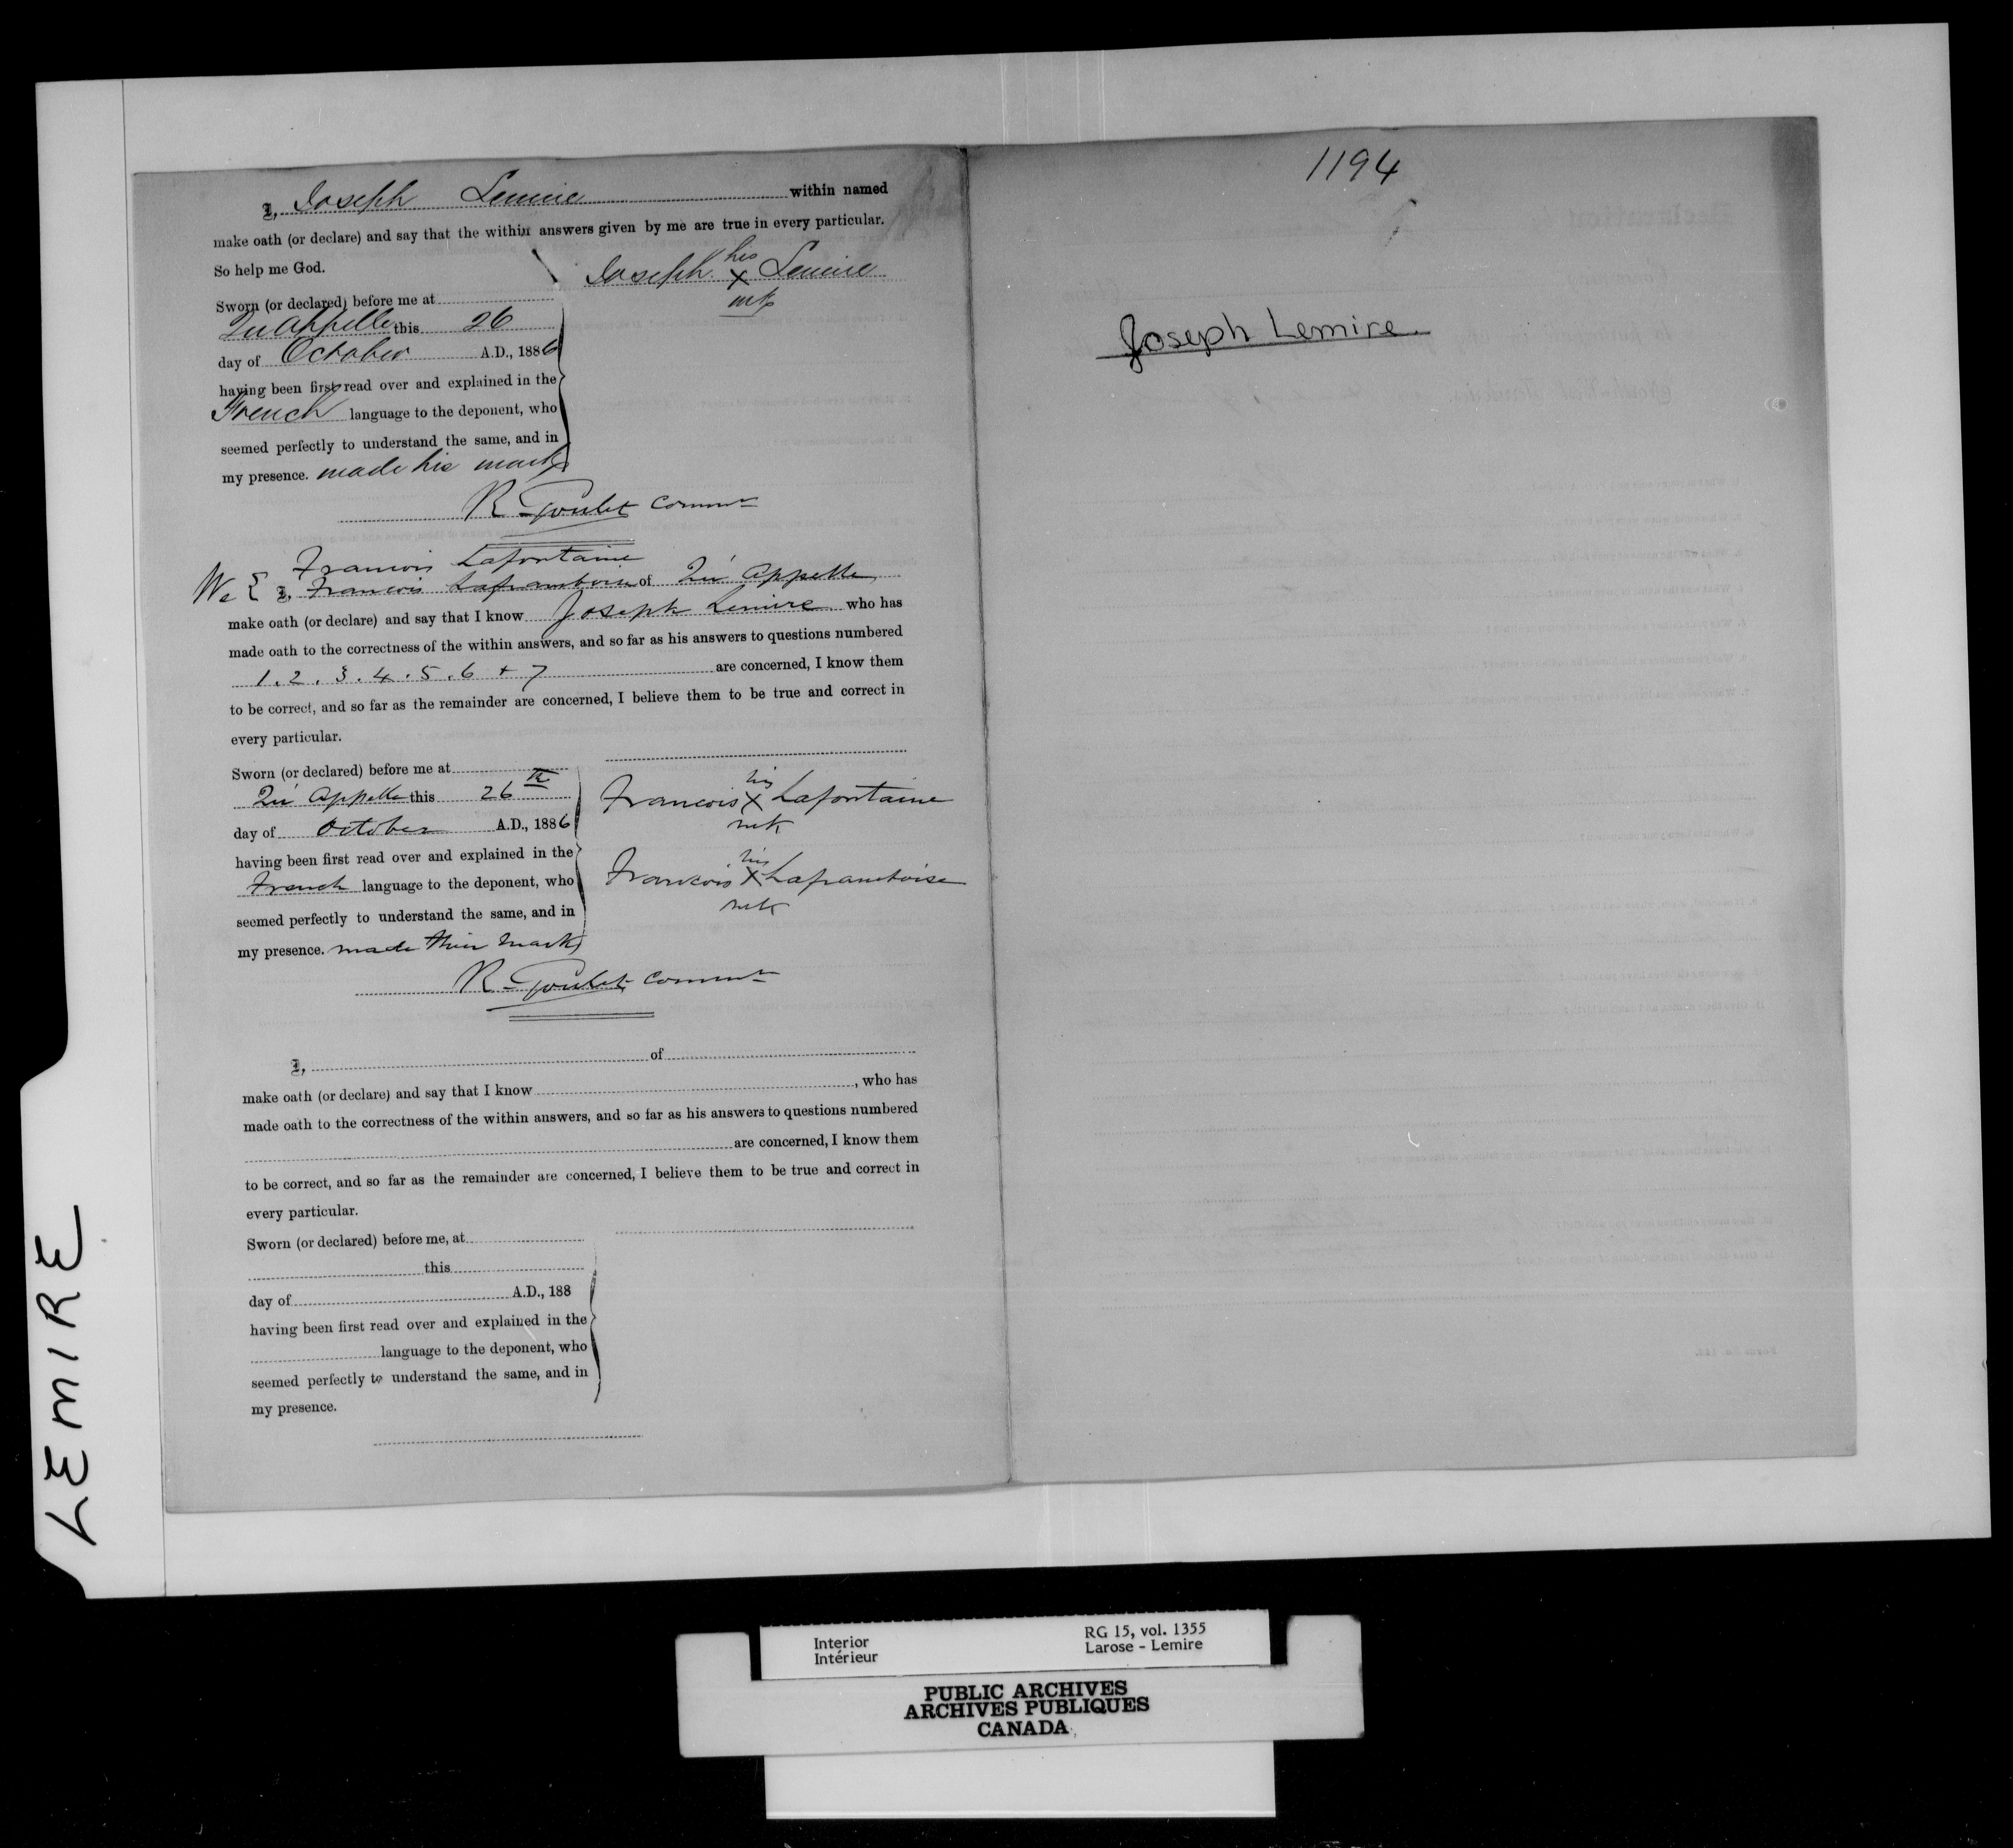 I, Joseph Lemire within named
make oath (or declare) and say that the within answers given by me are true in every particular.
So help me God.
Joseph his X Lemire
mk
Sworn (or declared) before me at
Qu'Appelle this 26
day of October A.D., 1886
having been first read over and explained in the
French language to the deponent, who
seemed perfectly to understand the same, and in
my presence. made his mark
R. Goulet Commr
Francois Lafontaine
We { I, Francois Laframboise of Qu'Appelle
make oath (or declare) and say that I know Joseph Lemire who has
made oath to the correctness of the within answers, and so far as his answers to questions numbered
1. 2. 3. 4. 5. 6 + 7 are concerned, I know them
to be correct, and so far as the remainder are concerned, I believe them to be true and correct in
every particular.
Sworn (or declared) before me at
Qu'Appelle this 26th
day of October A.D., 1886
having been first read over and explained in the
French language to the deponent, who
seemed perfectly to understand the same, and in
my presence. made their mark
Francois his X Lafontaine
mk
Francois his X Laframboise
mk
R. Goulet Commr
I, of
make oath (or declare) and say that I know , who has
made oath to the correctness of the within answers, and so far as his answers to questions numbered
are concerned, I know them
to be correct, and so far as the remainder are concerned, I believe them to be true and correct in
every particular.
Sworn (or declared) before me, at
this
day of A.D., 188
having been first read over and explained in the
language to the deponent, who
seemed perfectly to understand the same, and in
my presence.
1194
Joseph Lemire
LEMIRE
Interior
Intérieur
RG 15, vol. 1355
Larose - Lemire
PUBLIC ARCHIVES
ARCHIVES PUBLIQUES
CANADA